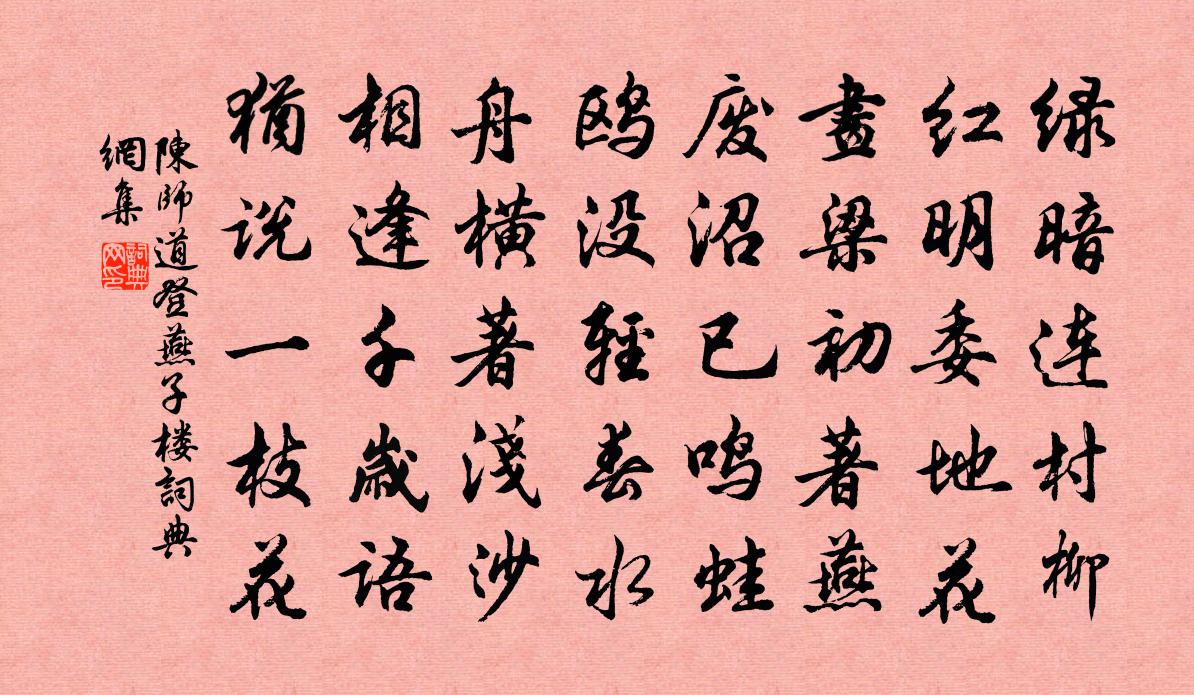 绿暗连村柳
红明委地花
画梁初著燕
废沼已鸣蛙
鸥没轻春水
舟横著浅沙
相逢千岁语
犹说一枝花
陳師道登燕子楼詞典
網集
詞典
网印